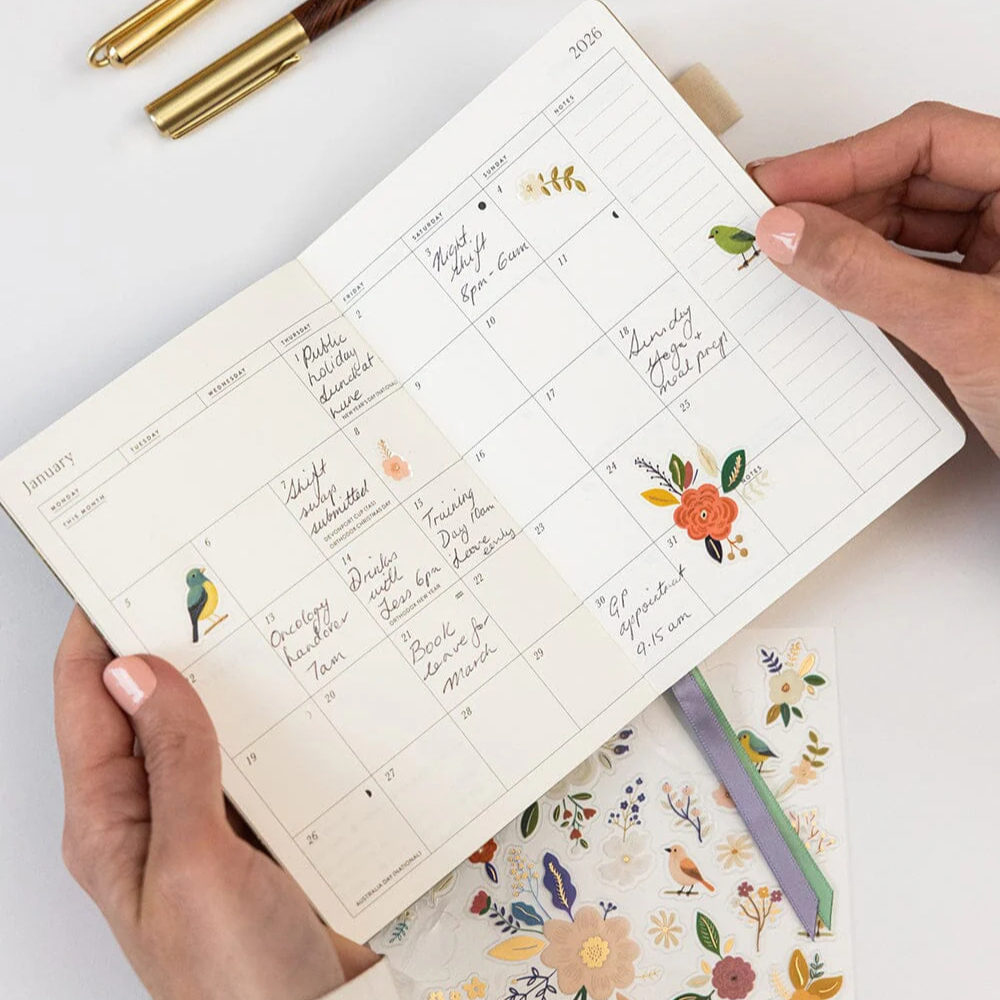 January
MONDAY
TUESDAY
WEDNESDAY
THURSDAY
THIS MONTH
1
Public
holiday
lunch at
NEW YEAR'S DAY (NATIONAL)
5
6
7
Shift
swap
submitted
DEVONPORT CUP (TAS)
ORTHODOX CHRISTMAS DAY
8
2
13
Oncology
handover
7am
14
Drinks
with
Jess 6pm
ORTHODOX NEW YEAR
15
Training
Day 10am
Leave
early
19
20
21
Book
leave for
March
22
26
AUSTRALIA DAY (NATIONAL)
27
28
29
2026
FRIDAY
SATURDAY
SUNDAY
NOTES
2
3
Night
shift
8pm - 6am
4
9
10
11
16
17
18
Sunday
yoga +
meal prep!
23
24
25
30
GP
appointment
9.15 am
31
NOTES